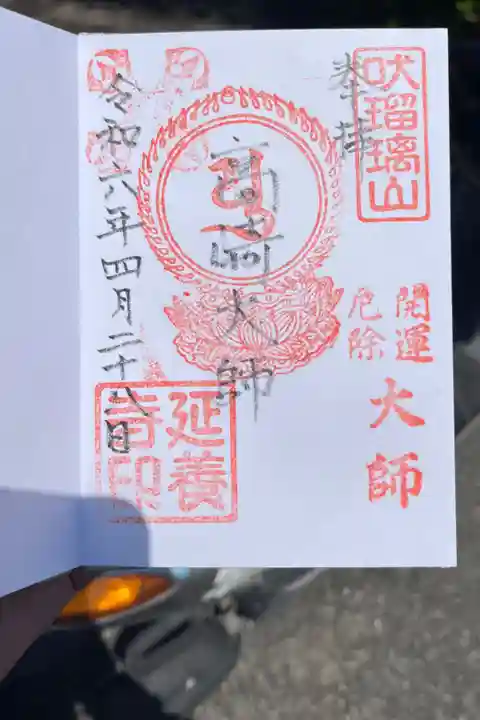 奉拝
吠瑠璃山
開運
厄除
大師
高崎大師
延養
寺印
令和六年四月二十八日